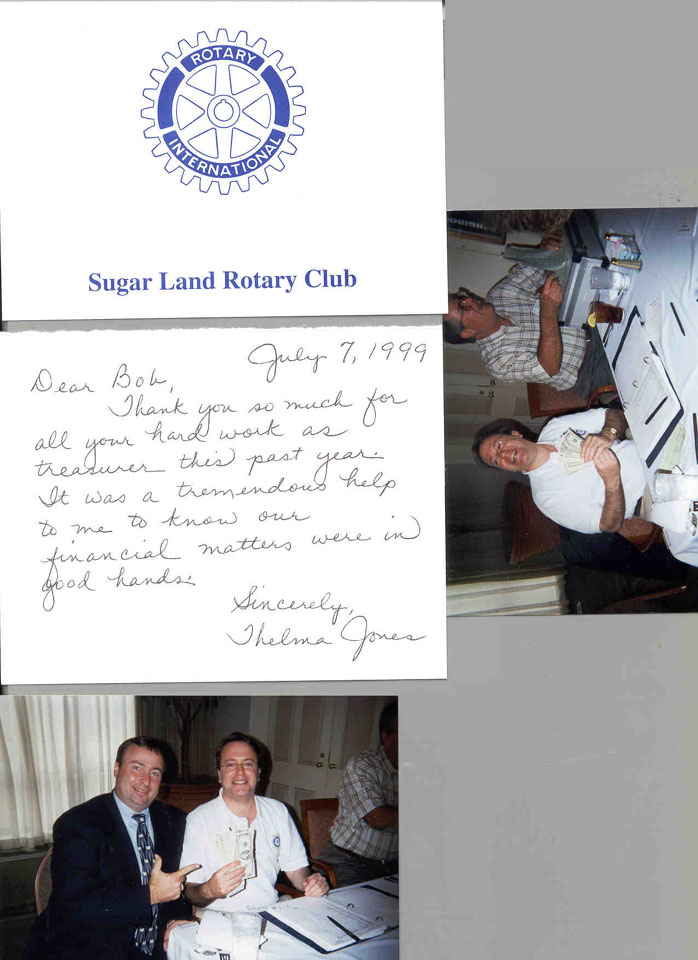 ROTARY
INTERNATIONAL
Sugar Land Rotary Club
July 7, 1999
Dear Bob,
Thank you so much for
all your hard work as
treasurer this past year.
It was a tremendous help
to me to know our
financial matters were in
good hands.
Sincerely,
Thelma Jones